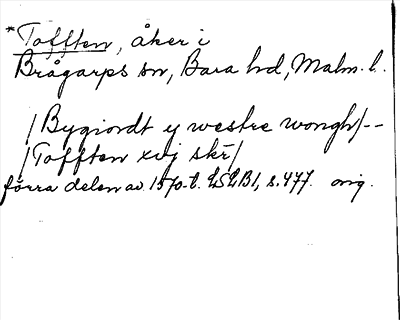 *Tofften, åker i
Brågarps sn, Bara hd, Malm. l.
/Bygiordt y westre wongh/--
/Tofften xvj skr/
förra delen av 1570-t. LSLB1, s. 477. orig.